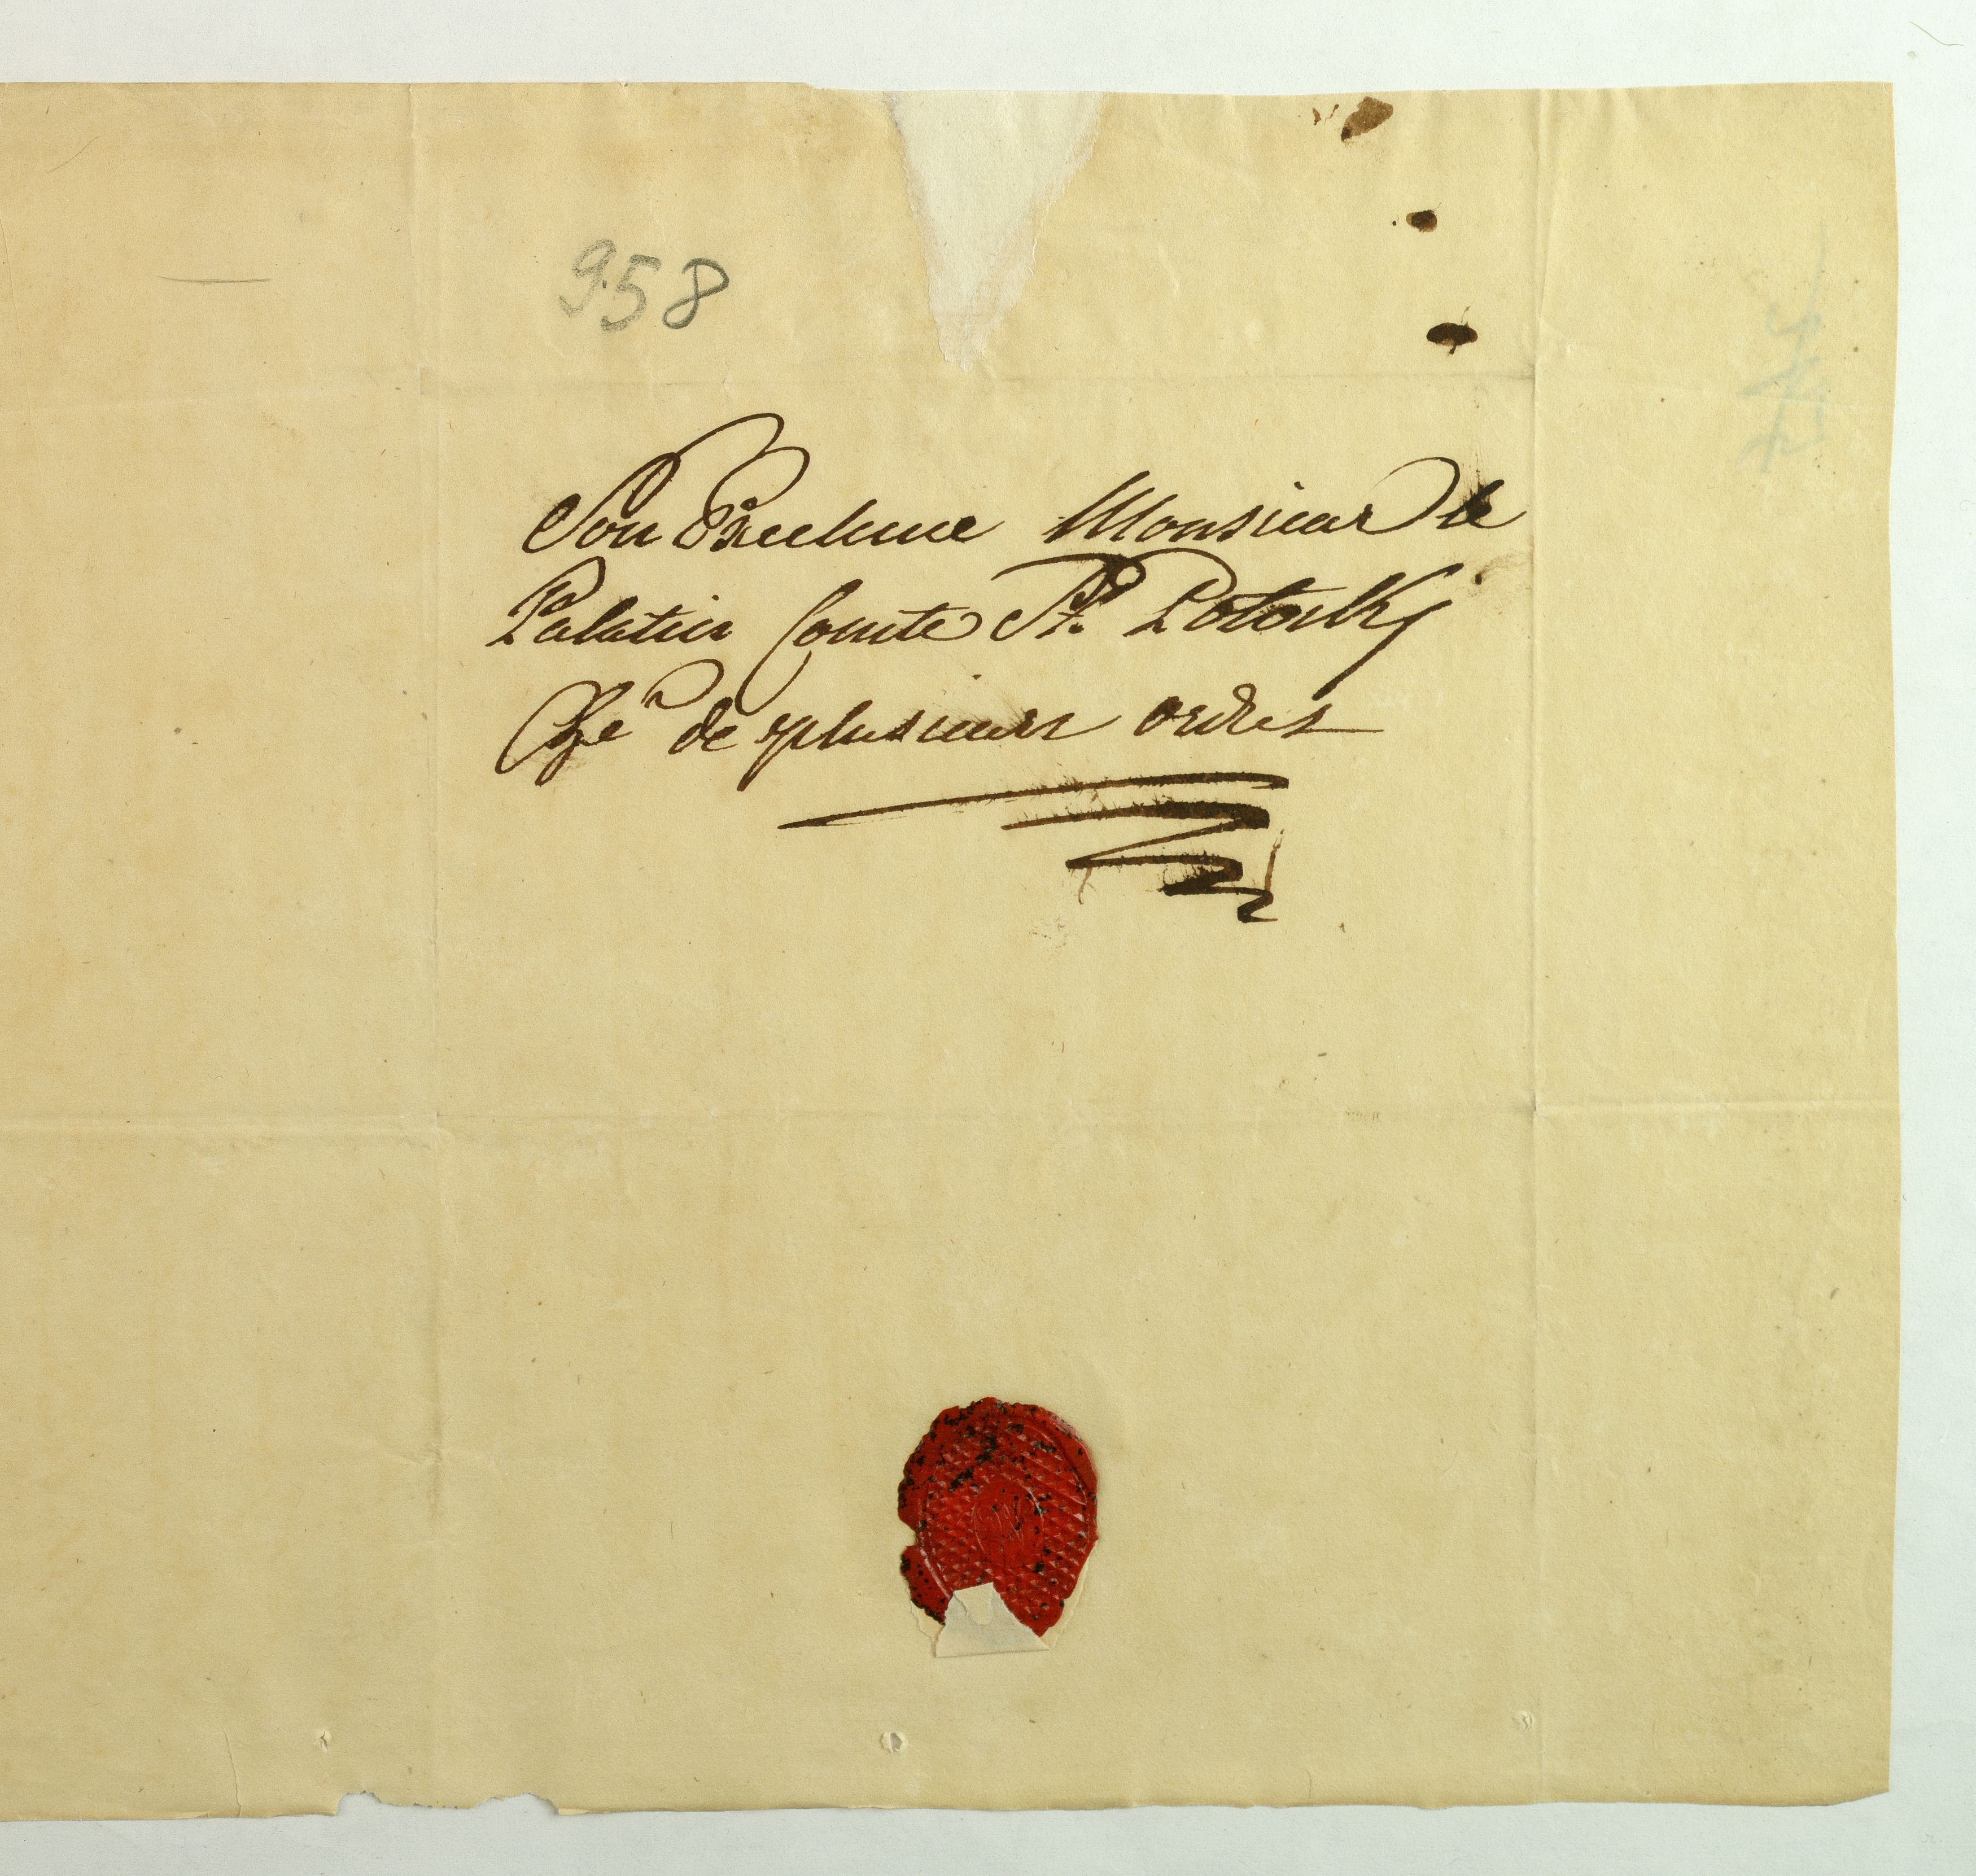 958
Son Excelence Monsieur le
Palatin Comte St. Potocki
Che de plusieurs ordres